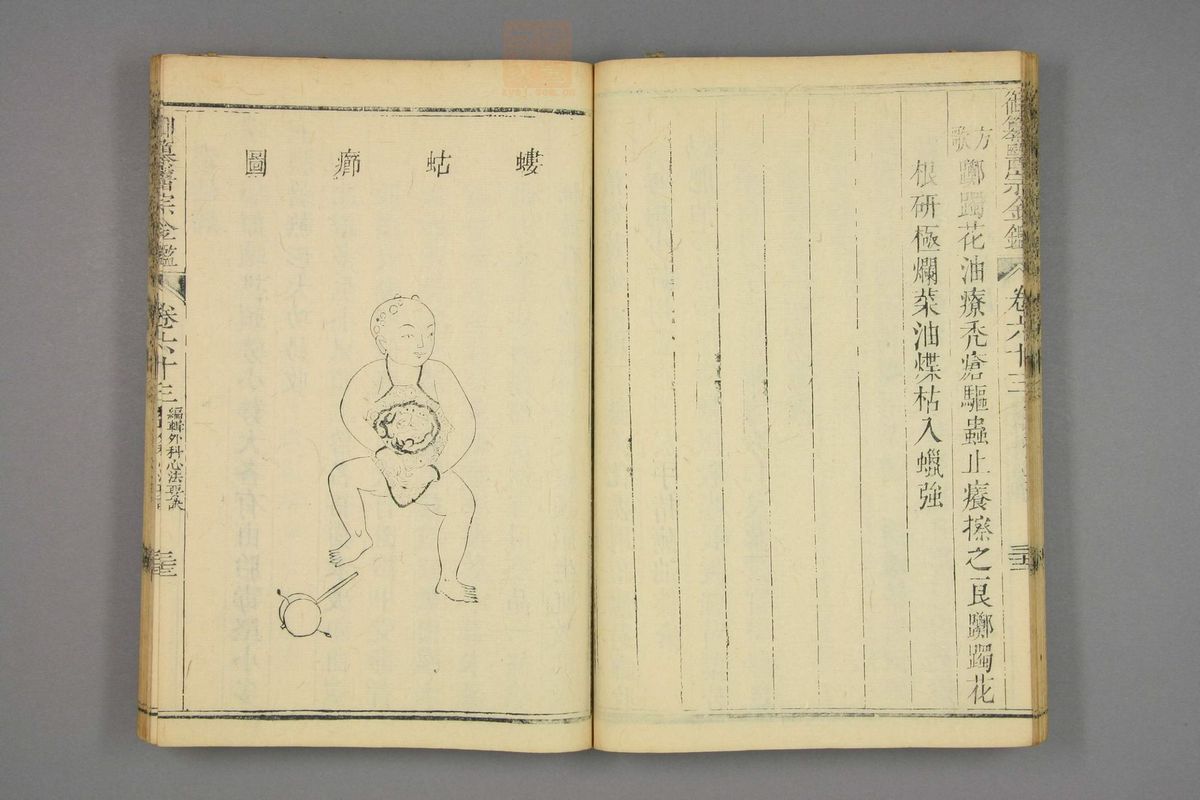 御纂醫宗金鑑 卷六十三
方歌
躑躅花油療禿瘡驅蟲止癢擦之良躑躅花
根研極爛菜油煠枯入蠟強
螻蛄癤圖
御纂醫宗金鑑 卷六十三 編輯外科心法要訣